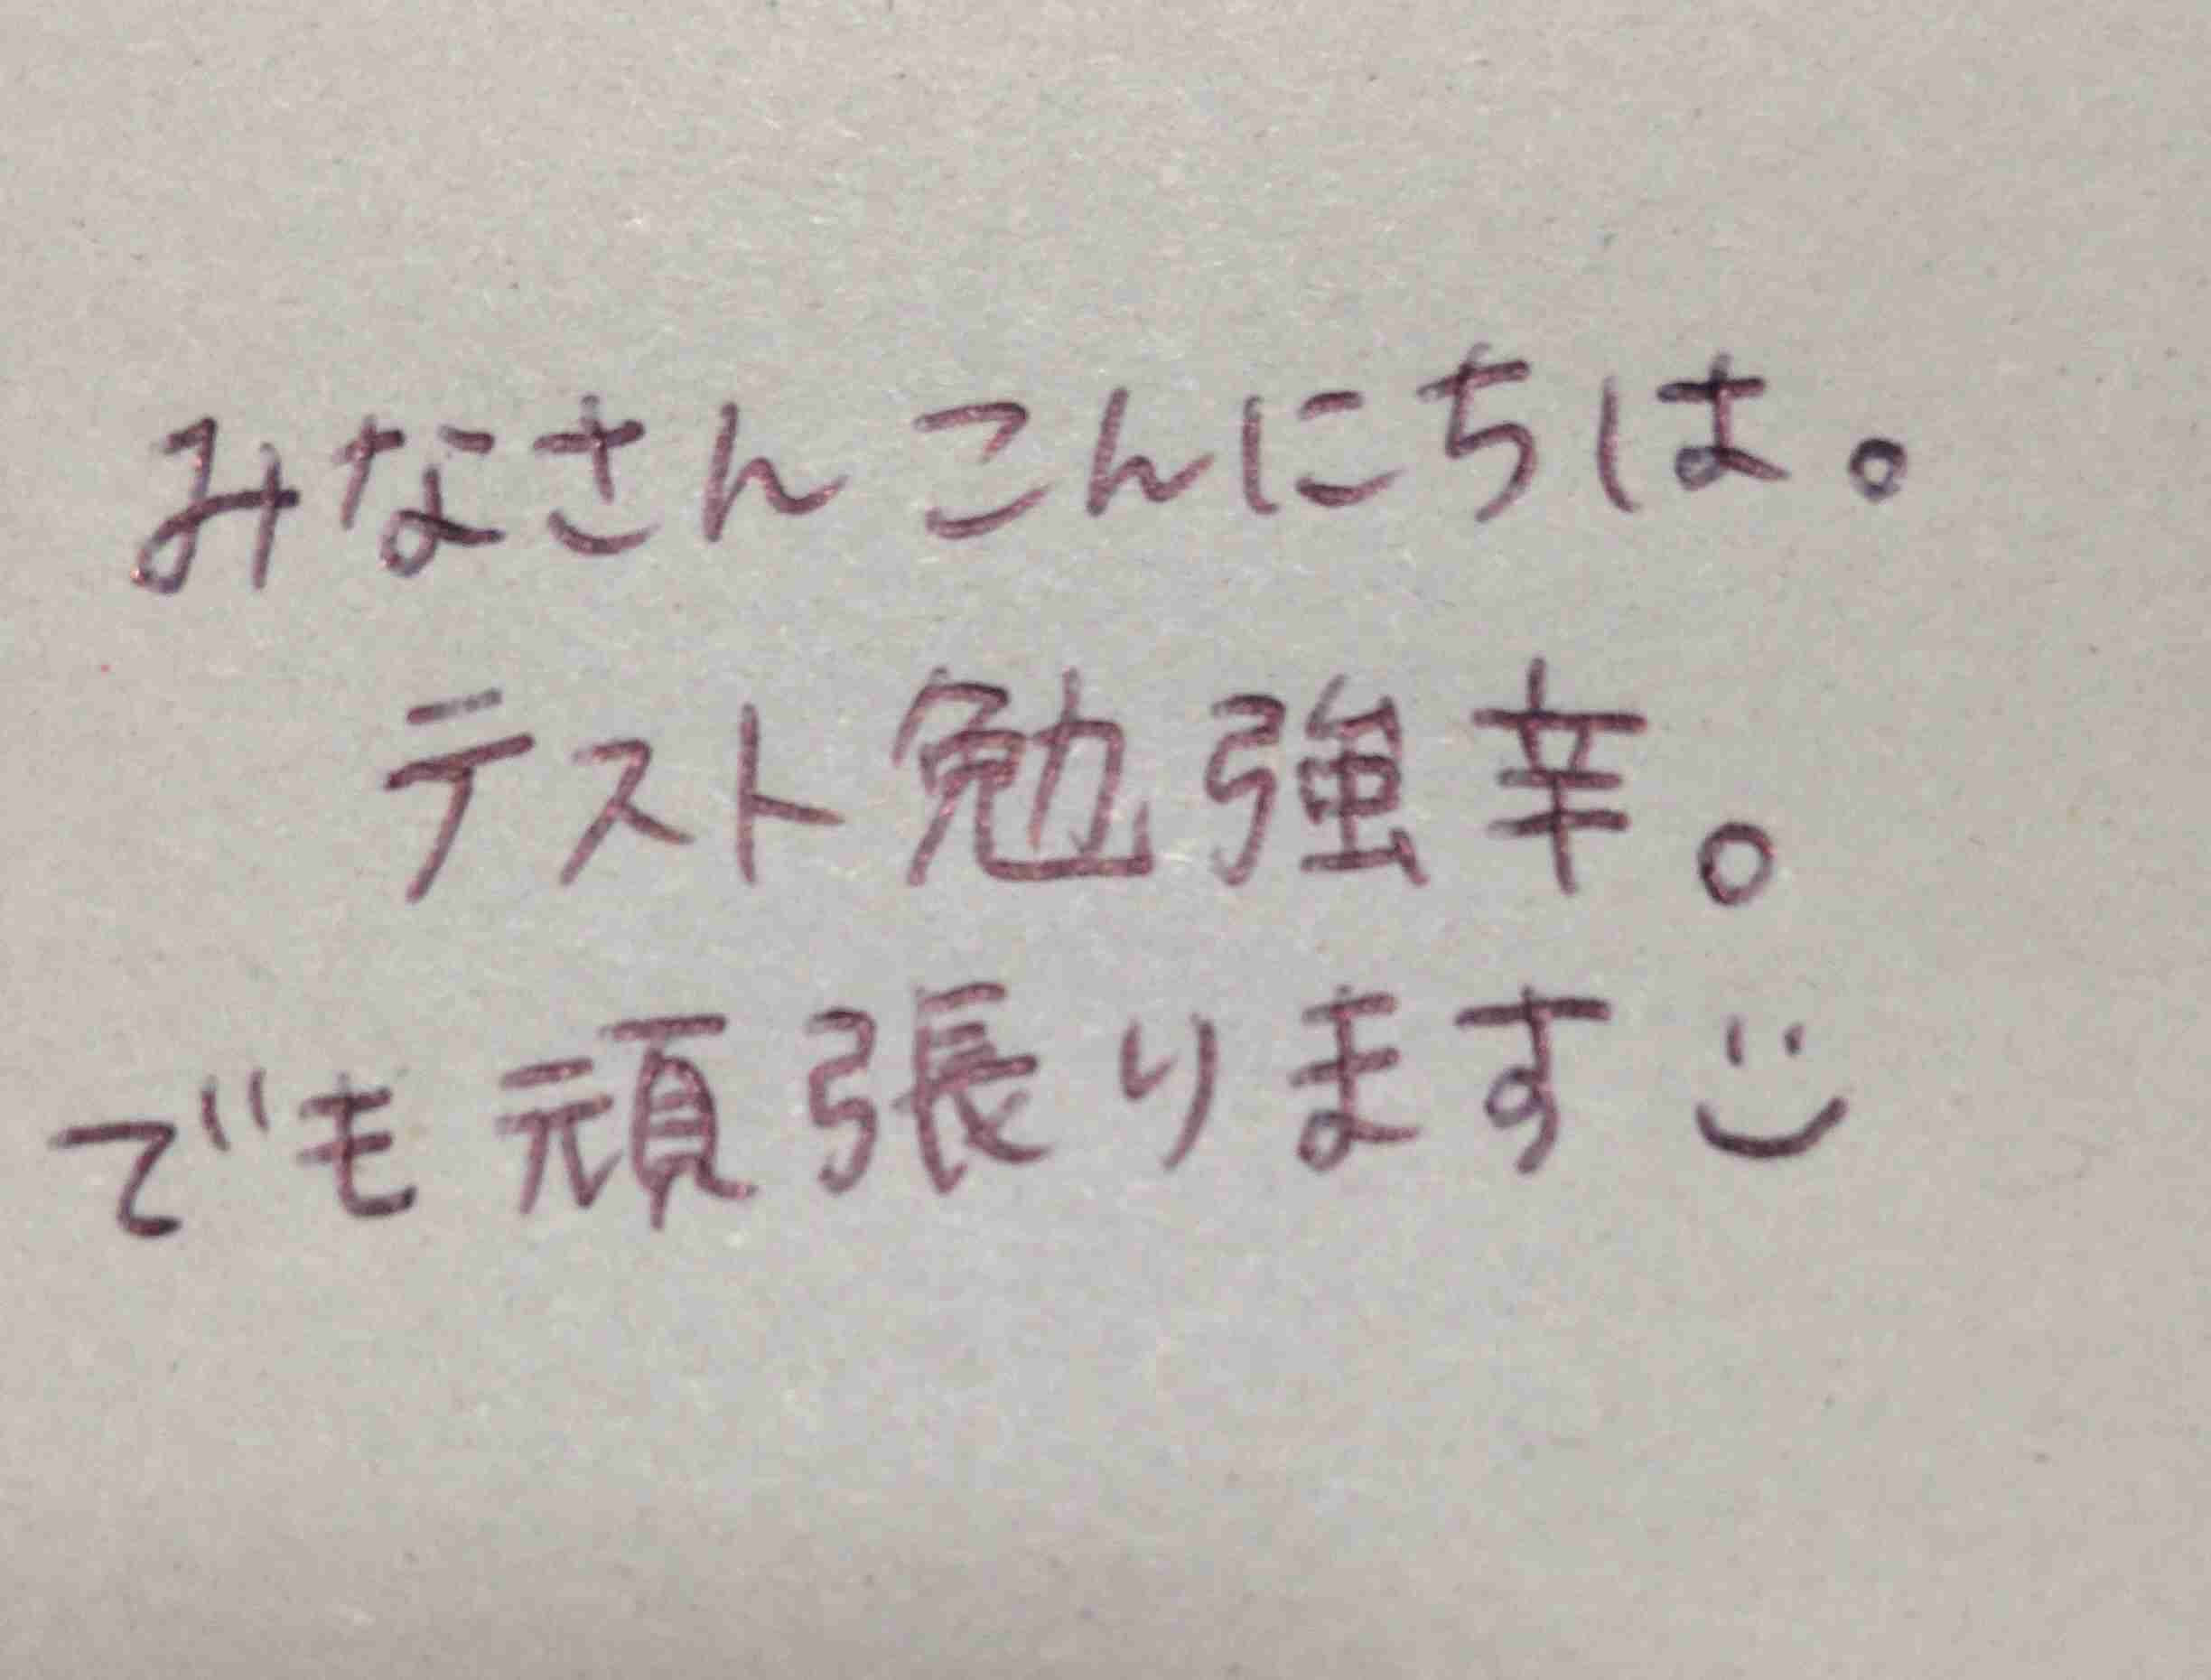 みなさん こんにちは。
テスト勉強辛。
でも頑張ります